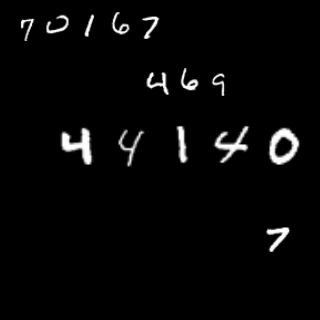 70167
469
44140
7